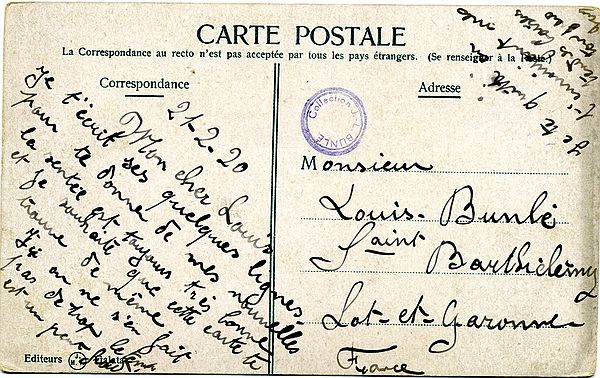 CARTE POSTALE
La Correspondance au recto n'est pas acceptée par tous les pays étrangers. (Se renseigner à la Poste)
Correspondance
Adresse
21-2-20
Mon cher Louis
Je t'écrit ses quelques lignes
pour te donne de mes nouvelles
la santée est toujours très bonne
et je souhaite que cette carte te
trouve de même.
Ici on ne s'en fait
pas de trop le
est un peu
Je te quitte
Collection J. L. BUNLE
Monsieur
Louis Bunlé
Saint Barthélemy
Lot-et-Garonne
France
Editeurs
Galata